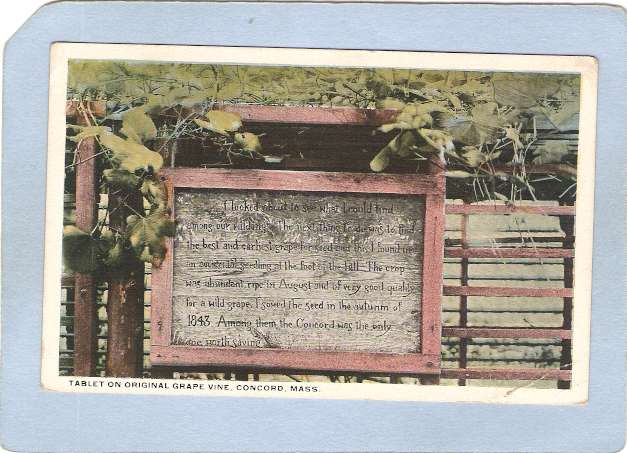 I looked about to see what I could find
among our wildings. The next thing to do was to find
the best and earliest grape for seed and this I found in
an accidental seedling at the foot of the hill. The crop
was abundant ripe in August and of very good quality
for a wild grape. I sowed the seed in the autumn of
1843. Among them the Concord was the only
one worth saving
TABLET ON ORIGINAL GRAPE VINE, CONCORD, MASS.